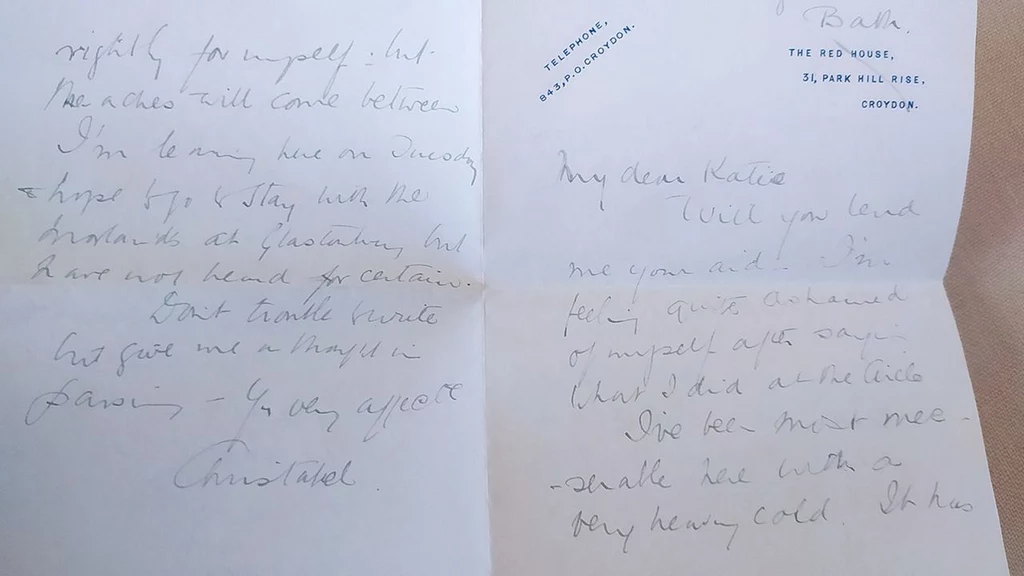 Bath.
TELEPHONE,
843, P.O. CROYDON.
THE RED HOUSE,
31, PARK HILL RISE,
CROYDON.
My dear Katie
Will you lend
me your aid. I'm
feeling quite ashamed
of myself after saying
what I did at the Circle
I've been most mee-
-serable here with a
very heavy cold. It has
rightly for myself: but
the aches will come between
I'm leaving here on Tuesday
& hope to go & stay with the
Morlands at Glastonbury but
have not heard for certain.
Don't trouble to write
but give me a thought in
passing - Yr very affecte
Christabel.